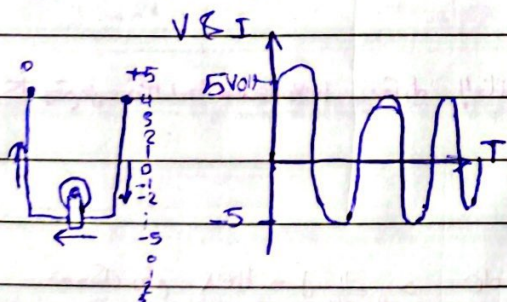 V & I
0
+5
4
3
2
1
0
-1
-2
-5
0
5 Volt
-5
T